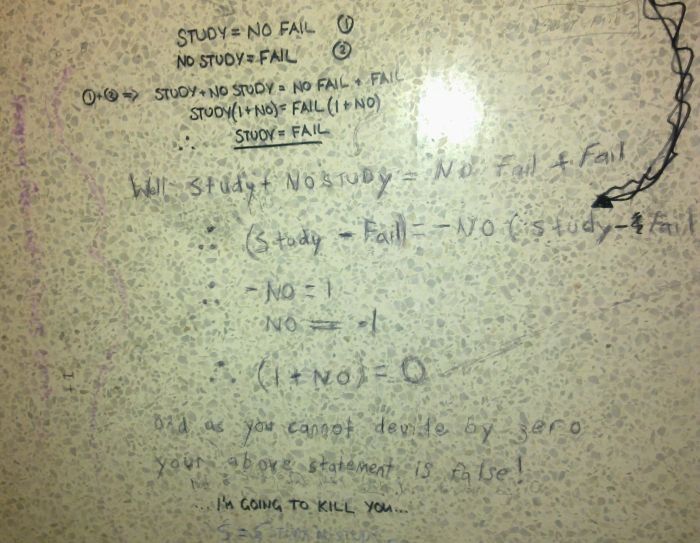 STUDY = NO FAIL ①
NO STUDY = FAIL ②
①+② => STUDY + NO STUDY = NO FAIL + FAIL
STUDY(1+NO) = FAIL (1+NO)
∴ STUDY = FAIL
Well Study + NO STUDY = NO Fail + Fail
∴ (Study - Fail) = -NO (study - Fail
∴ -NO = 1
NO = -1
∴ (1 + NO) = 0
and as you cannot devide by zero
your above statement is false!
... I'M GOING TO KILL YOU...